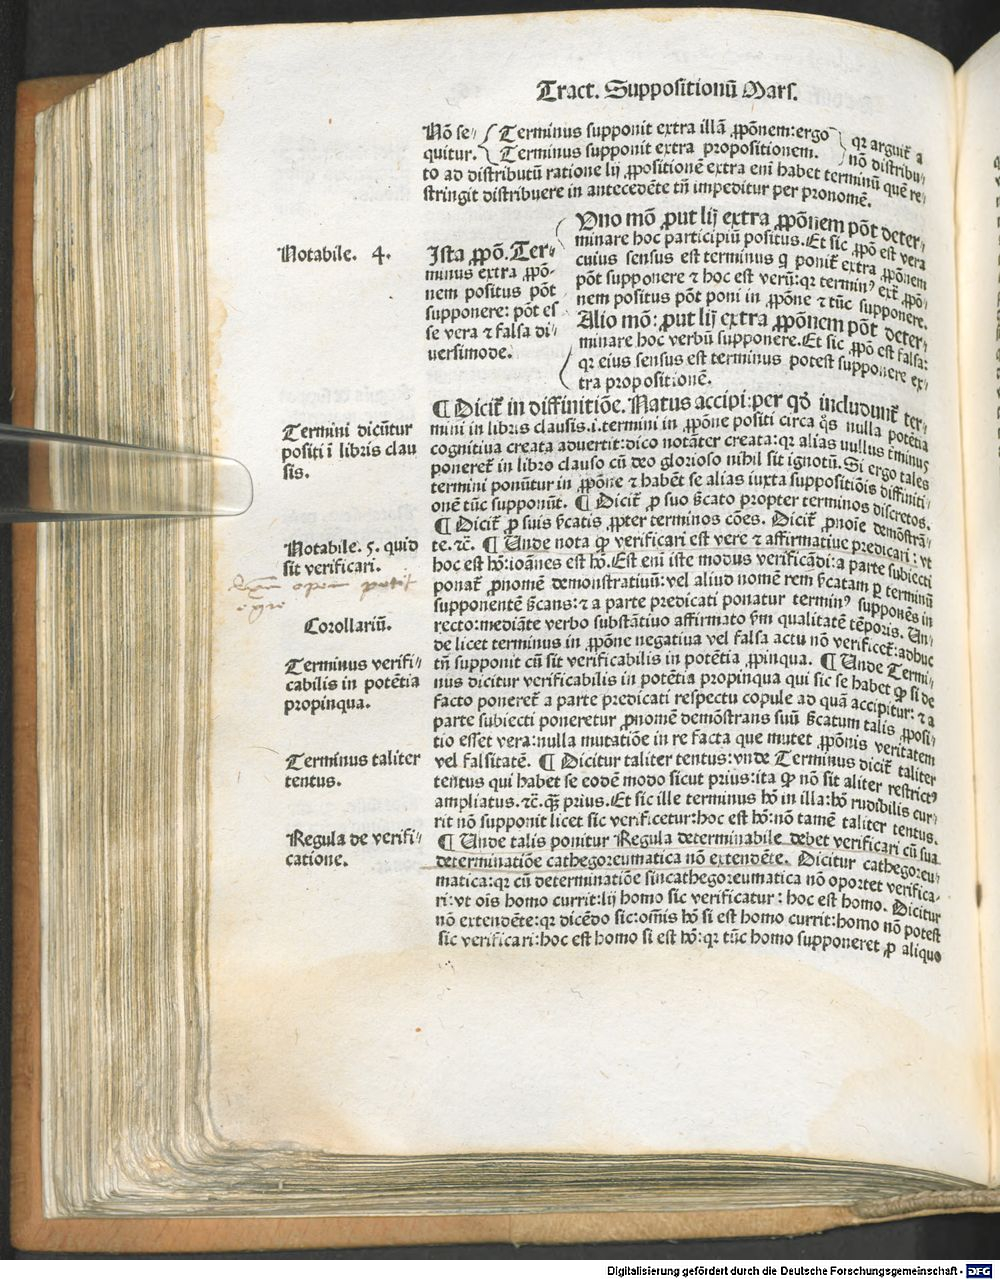 Tract. Suppositionū Mars.
Nō se⸗ Terminus supponit extra illā ꝓpōnem:ergo qꝛ arguit̄ a
quitur. Terminus supponit extra propositionem. nō distribu⸗
to ad distributū ratione lij ꝓpositionē extra enī habet terminū quē re⸗
stringit distribuere in antecedēte tñ impeditur per pronomē.
Notabile. 4.
Ista ꝓpō. Ter⸗
minus extra ꝓpō⸗
nem positus pōt
supponere: pōt es
se vera ⁊ falsa di⸗
uersimode.
Uno mō ꝓut lij extra ꝓpōnem pōt deter⸗
minare hoc participiū positus. Et sic ꝓpō est vera
cuius sensus est terminus q̄ ponit̄ extra ꝓpōnem
pōt supponere ⁊ hoc est verū:qꝛ terminꝰ ext̄ ꝓpō⸗
nem positus pōt poni in ꝓpōne ⁊ tūc supponere.
Alio mō: ꝓut lij extra ꝓpōnem pōt deter⸗
minare hoc verbū supponere. Et sic ꝓpō est falsa:
qꝛ eius sensus est terminus potest supponere ex⸗
tra propositionē.
¶ Dicit̄ in diffinitiōe. Natus accipi:per qd̄ includunt̄ ter⸗
Termini dicūtur
positi ī libris clau
sis.
mini in libris clausis.i.termini in ꝓpōne positi circa q̄s nulla potētia
cognitiua creata aduertit:dico notāter creata:qꝛ alias nullus t̄minus
poneret̄ in libro clauso cū deo glorioso nihil sit ignotū. Si ergo tales
termini ponūtur in ꝓpōne ⁊ habēt se alias iuxta suppositiōis diffiniti⸗
onē tūc supponūt. ¶ Dicit̄ ꝓ suo s̄cato propter terminos discretos.
¶ Dicit̄ ꝓ suis s̄catis ꝓpter terminos cōes. Dicit̄ ꝓnoīe demōstrā⸗
Notabile. 5. quid
sit verificari.
te. ⁊c̄. ¶ Unde nota ꝙ verificari est vere ⁊ affirmatiue predicari: vt
hoc est hō:ioānes est hō. Est enī iste modus verificādi:a parte subiecti
ponat̄ ꝓnomē demonstratiuū:vel aliud nomē rem s̄catam ꝑ terminū
supponentē s̄cans:⁊ a parte predicati ponatur terminꝰ supponēs in
Corollariū.
recto:mediāte verbo substātiuo affirmato s̄m qualitatē tēporis. Un⸗
de licet terminus in ꝓpōne negatiua vel falsa actu nō verificet̄:adhuc
Terminus verifi⸗
cabilis in potētia
propinqua.
tñ supponit cū sit verificabilis in potētia ꝓpinqua. ¶ Unde Termi⸗
nus dicitur verificabilis in potētia propinqua qui sic se habet ꝙ si de
facto poneret̄ a parte predicati respectu copule ad quā accipitur: ⁊ a
parte subiecti poneretur ꝓnomē demōstrans suū s̄catum talis ꝓposi⸗
tio esset vera:nulla mutatiōe in re facta que mutet ꝓpōnis veritatem
Terminus taliter
tentus.
vel falsitatē. ¶ Dicitur taliter tentus:vnde Terminus dicit̄ taliter
tentus qui habet se eodē modo sicut prius:ita ꝙ nō sit aliter restrictꝰ
ampliatus. ⁊c̄. qȝ prius. Et sic ille terminus hō in illa:hō rudibilis cur⸗
rit nō supponit licet sic verificetur:hoc est hō:nō tamē taliter tentus.
Regula de verifi⸗
catione.
¶ Unde talis ponitur Regula determinabile debet verificari cū sua
determinatiōe cathegoreumatica nō extendēte. Dicitur cathegoreu⸗
matica:qꝛ cū determinatiōe sincathegoreumatica nō oportet verifica⸗
ri:vt ois homo currit:lij homo sic verificatur: hoc est homo. Dicitur
nō extendēte:qꝛ dicēdo sic:omīs hō si est homo currit:homo nō potest
sic verificari:hoc est homo si est hō:qꝛ tūc homo supponeret ꝓ aliquo
Digitalisierung gefördert durch die Deutsche Forschungsgemeinschaft - DFG